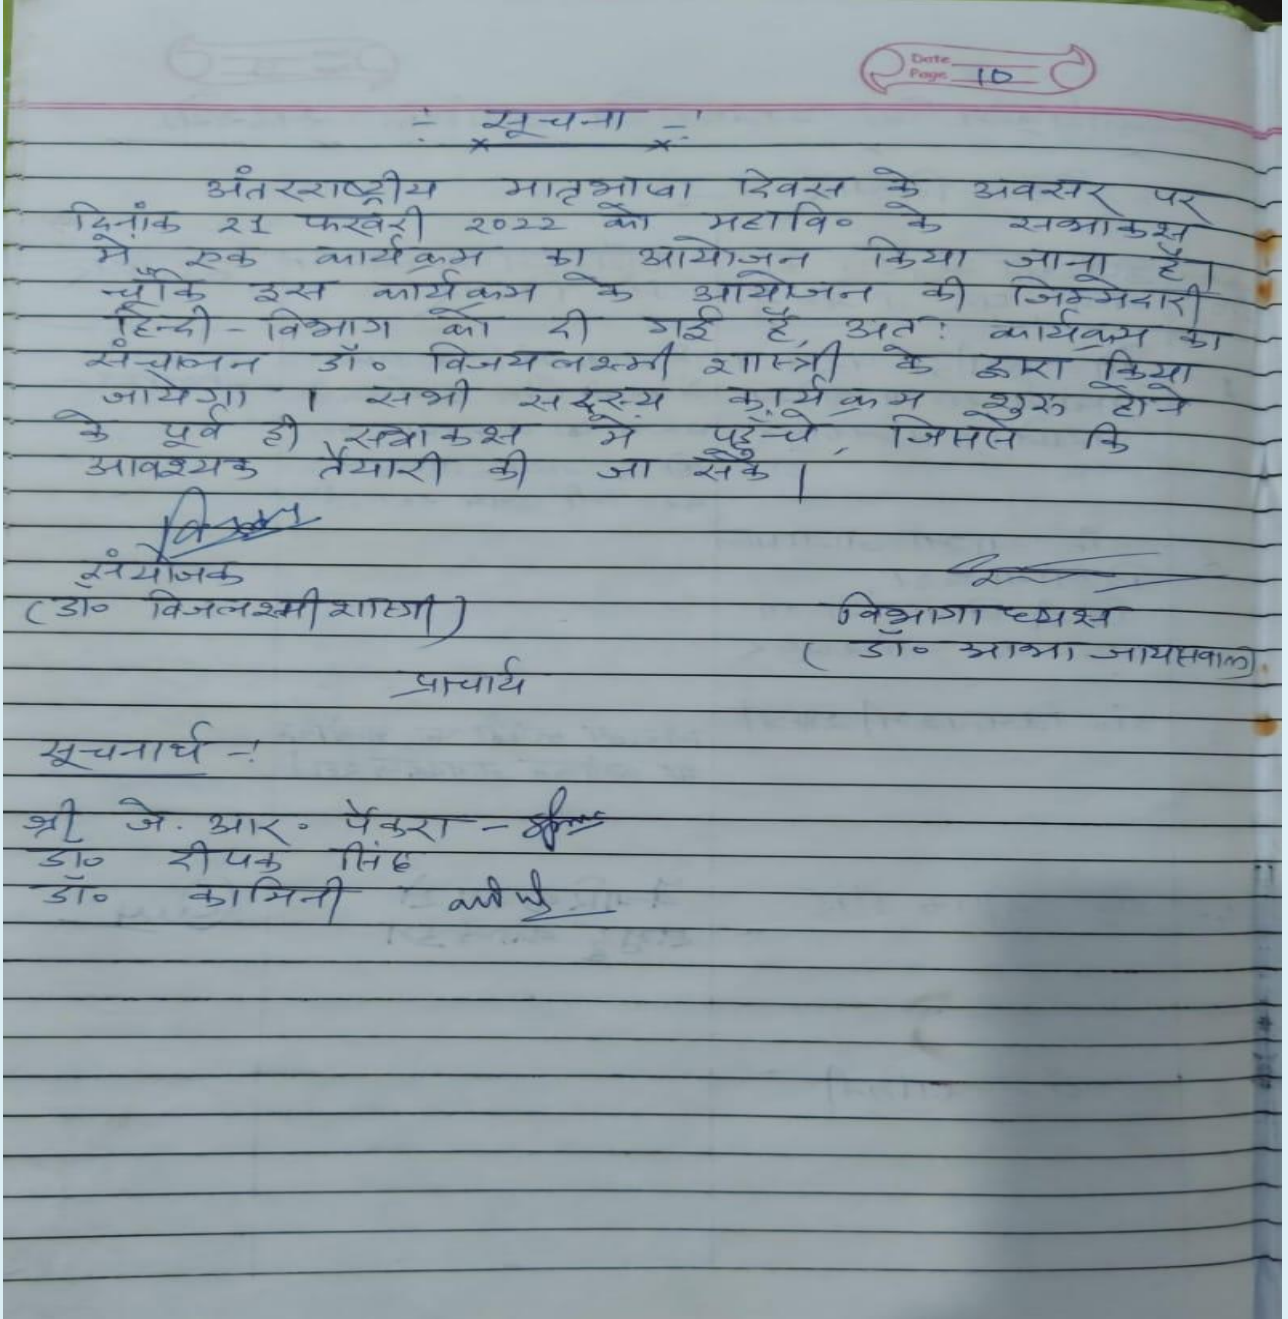 Date
Page 10
÷ सूचना -:
अंतरराष्ट्रीय मातृभाषा दिवस के अवसर पर
दिनांक 21 फरवरी 2022 को महावि० के सभाकक्ष
में एक कार्यक्रम का आयोजन किया जाना है।
चूँकि इस कार्यक्रम के आयोजन की जिम्मेदारी
हिन्दी - विभाग को दी गई है, अत: कार्यक्रम का
संचालन डॉ० विजयलक्ष्मी शास्त्री के द्वारा किया
जायेगा । सभी सदस्य कार्यक्रम शुरू होने
के पूर्व ही सभाकक्ष में पहुंचे, जिससे कि
आवश्यक तैयारी की जा सके।
संयोजक
(डॉ० विजलक्ष्मी शास्त्री)
विभागाध्यक्ष
(डॉ० आभा जायसवाल)
प्राचार्य
सूचनार्थ -:
श्री जे. आर. पैकरा -
डॉ० दीपक सिंह
डॉ० कामिनी